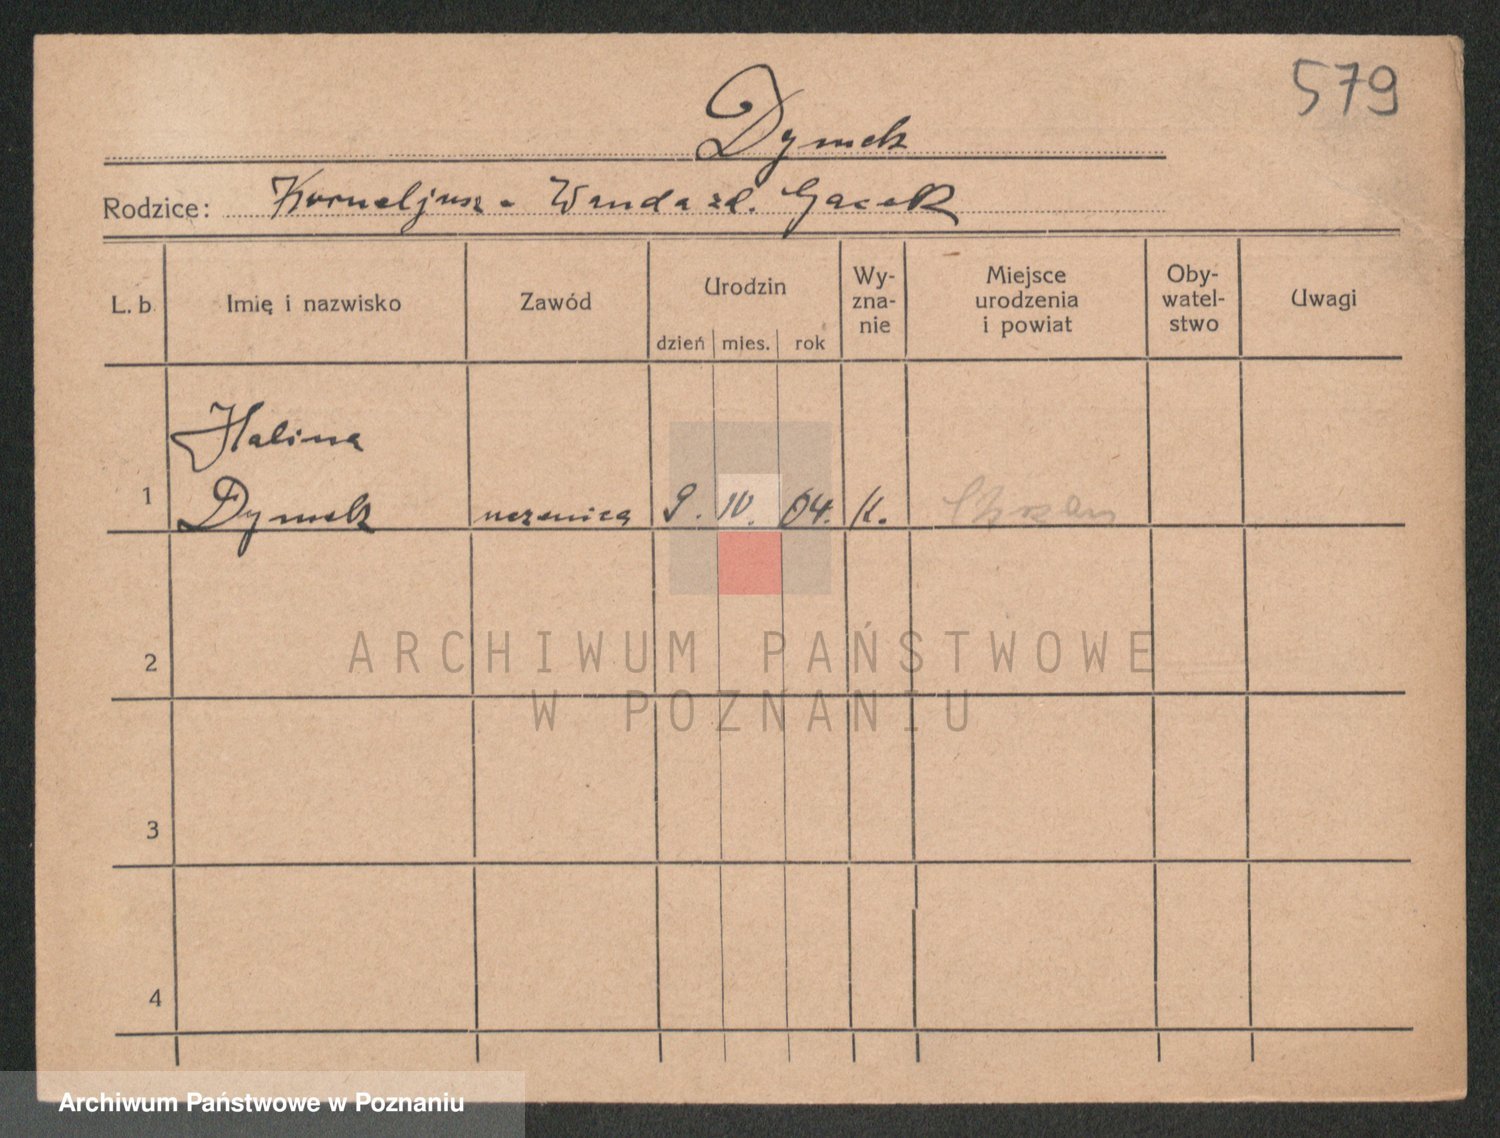 579
Dymek
Rodzice: Korneljusz - Wanda zd. Gacek
L. b. Imię i nazwisko Zawód Urodzin dzień mies. rok Wy-zna-nie Miejsce urodzenia i powiat Oby-watel-stwo Uwagi
Halina
1 Dymek uczenica 9. IV. 04. K.
2
ARCHIWUM PAŃSTWOWE
W POZNANIU
3
4
Archiwum Państwowe w Poznaniu